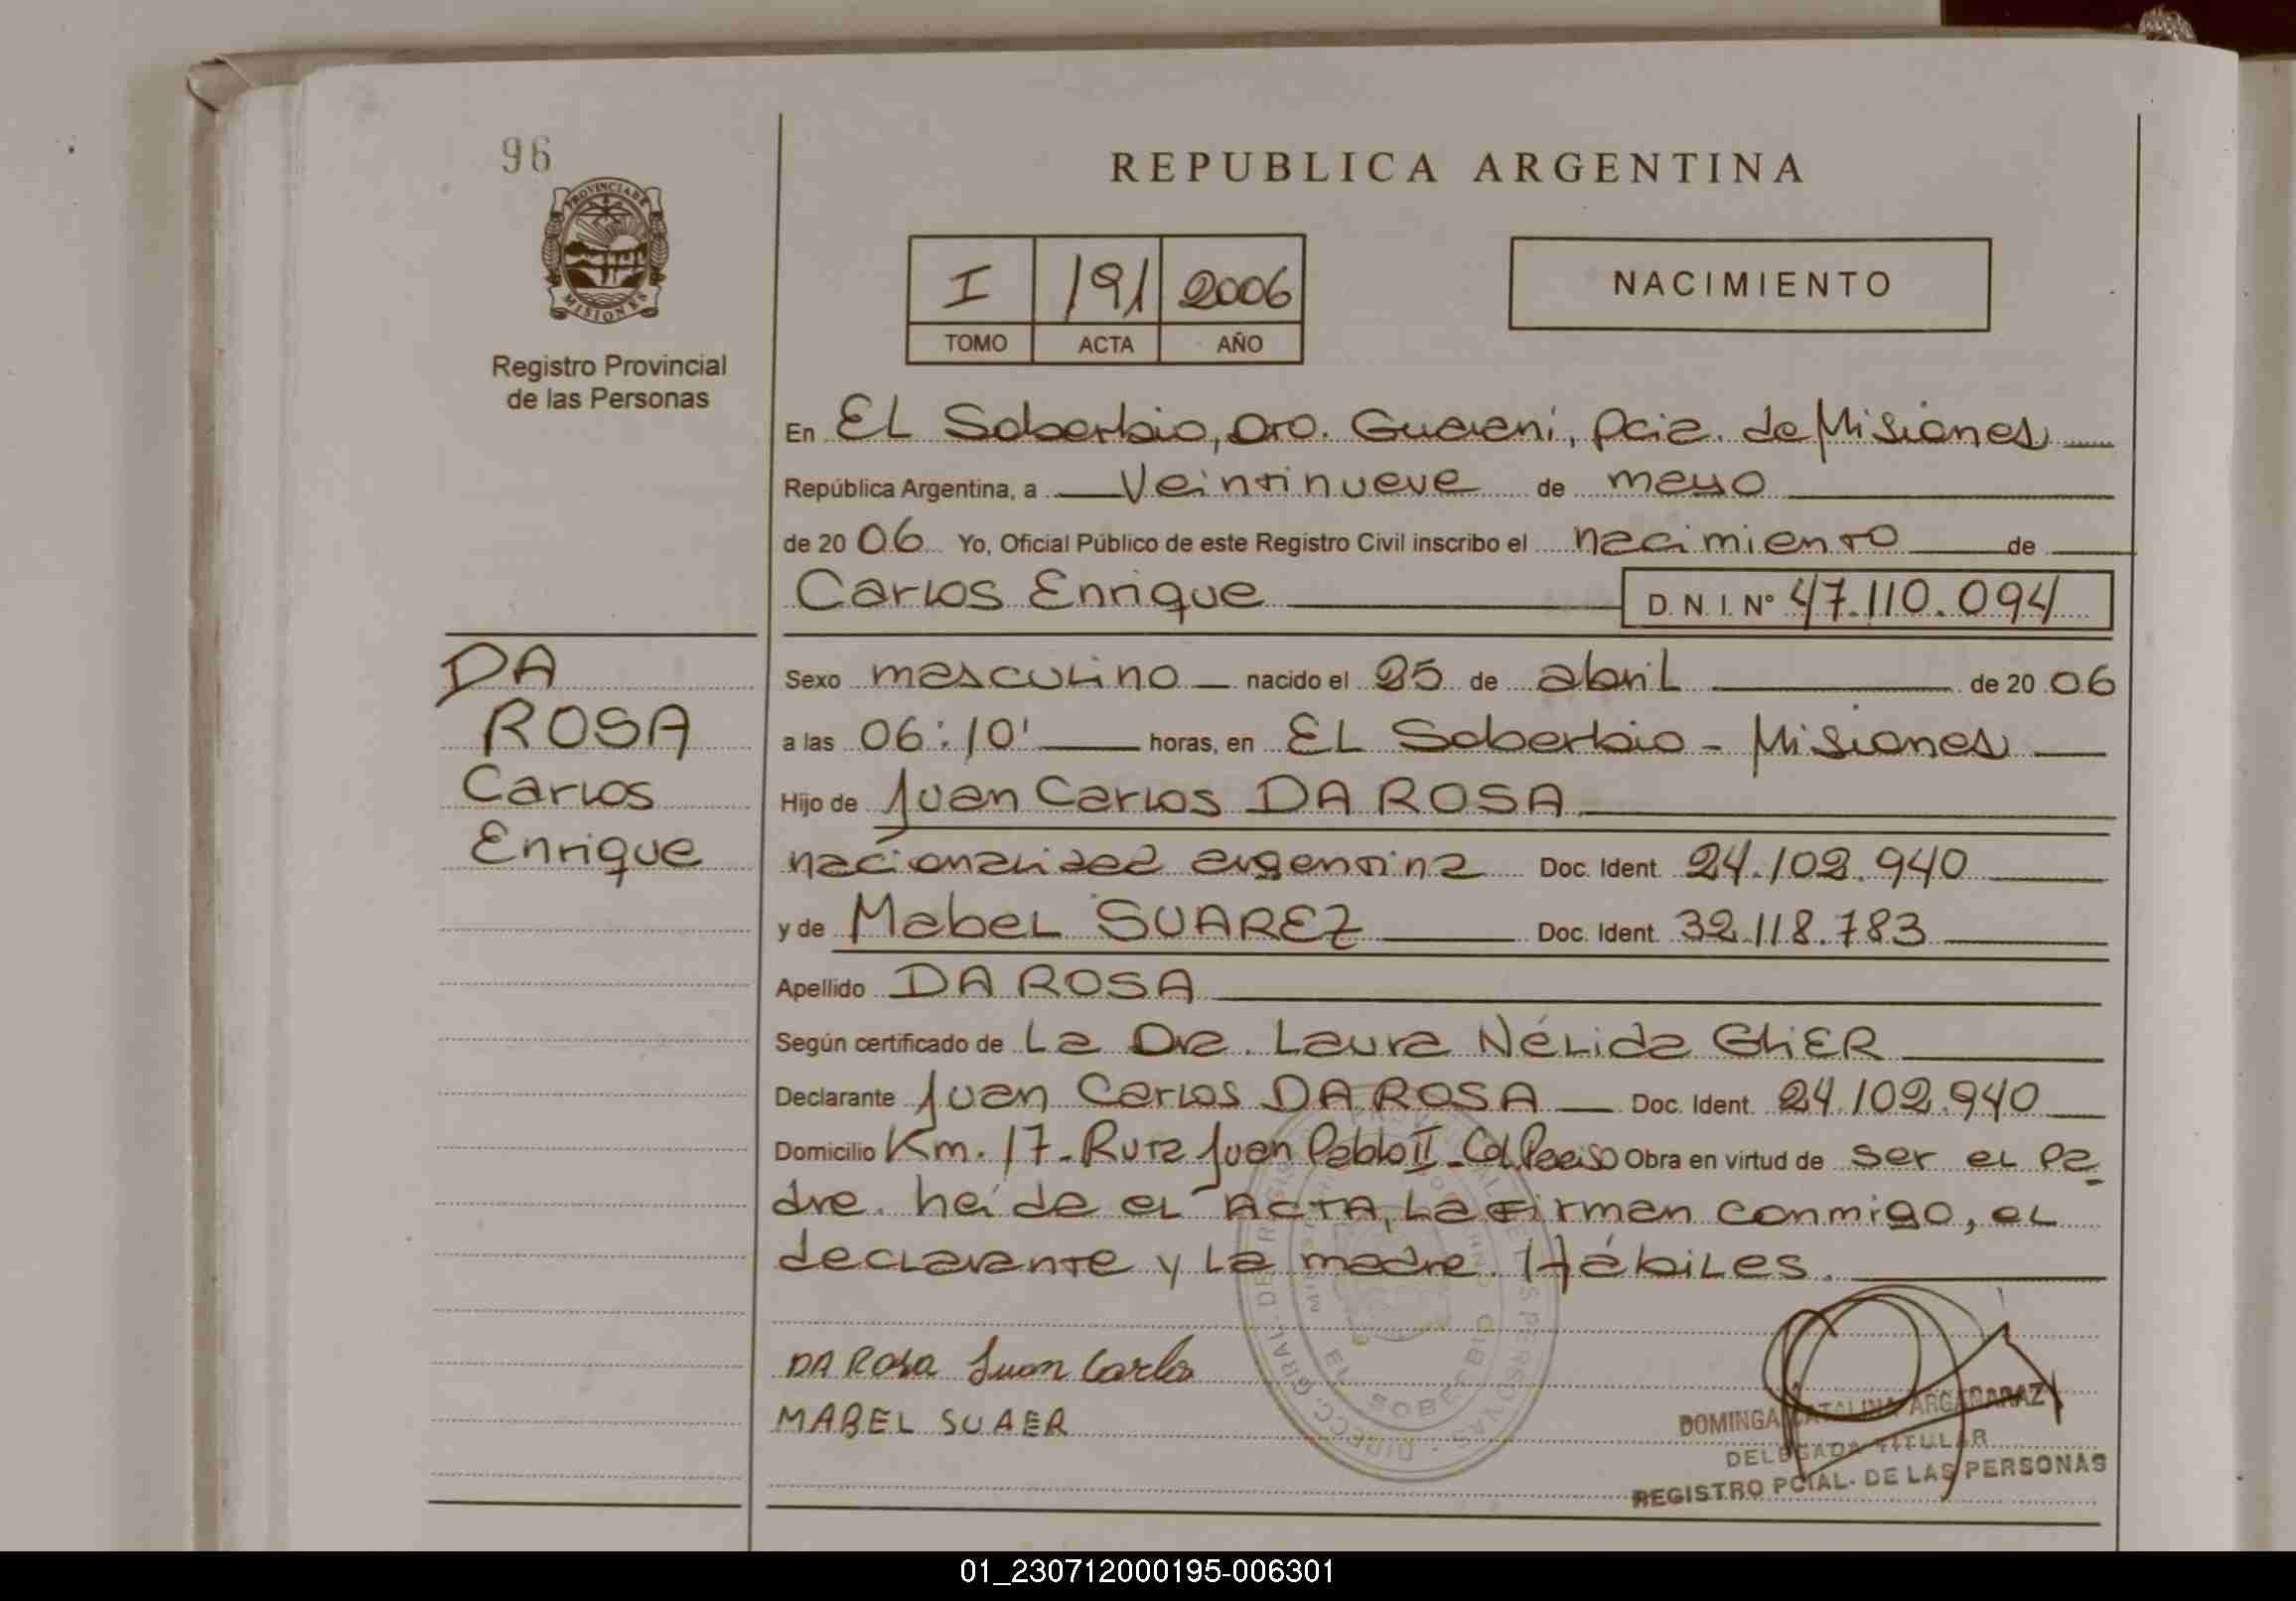 96
PROVINCIA DE
MISIONES
Registro Provincial
de las Personas
REPUBLICA ARGENTINA
I 191 2006
TOMO ACTA AÑO
NACIMIENTO
En EL Soberbio, Dto. Guaraní, Pcia. de Misiones
República Argentina, a Veintinueve de mayo
de 2006 Yo, Oficial Público de este Registro Civil inscribo el nacimiento de
Carlos Enrique D.N.I.Nº 47.110.094
DA
ROSA
Carlos
Enrique
Sexo masculino nacido el 25 de abril de 2006
a las 06:10' horas, en EL Soberbio - Misiones
Hijo de Juan Carlos DA ROSA
nacionalidad argentina Doc. Ident. 24.102.940
y de Mabel SUAREZ Doc. Ident. 32.118.783
Apellido DA ROSA
Según certificado de La Dra. Laura Nélida GLIER
Declarante Juan Carlos DA ROSA Doc. Ident. 24.102.940
Domicilio Km. 17 - Ruta Juan Pablo II - Col. Obra en virtud de ser el pa-
dre. heida el ACTA, La Firman conmigo, el
declarante y La madre. Hábiles.
DA ROSA Juan Carlos
MABEL SUAER
EL SOBERBIO
DOMINGA CATALINA ARGAÑARAZ
DELEGADA TITULAR
REGISTRO PCIAL- DE LAS PERSONAS
01_230712000195-006301